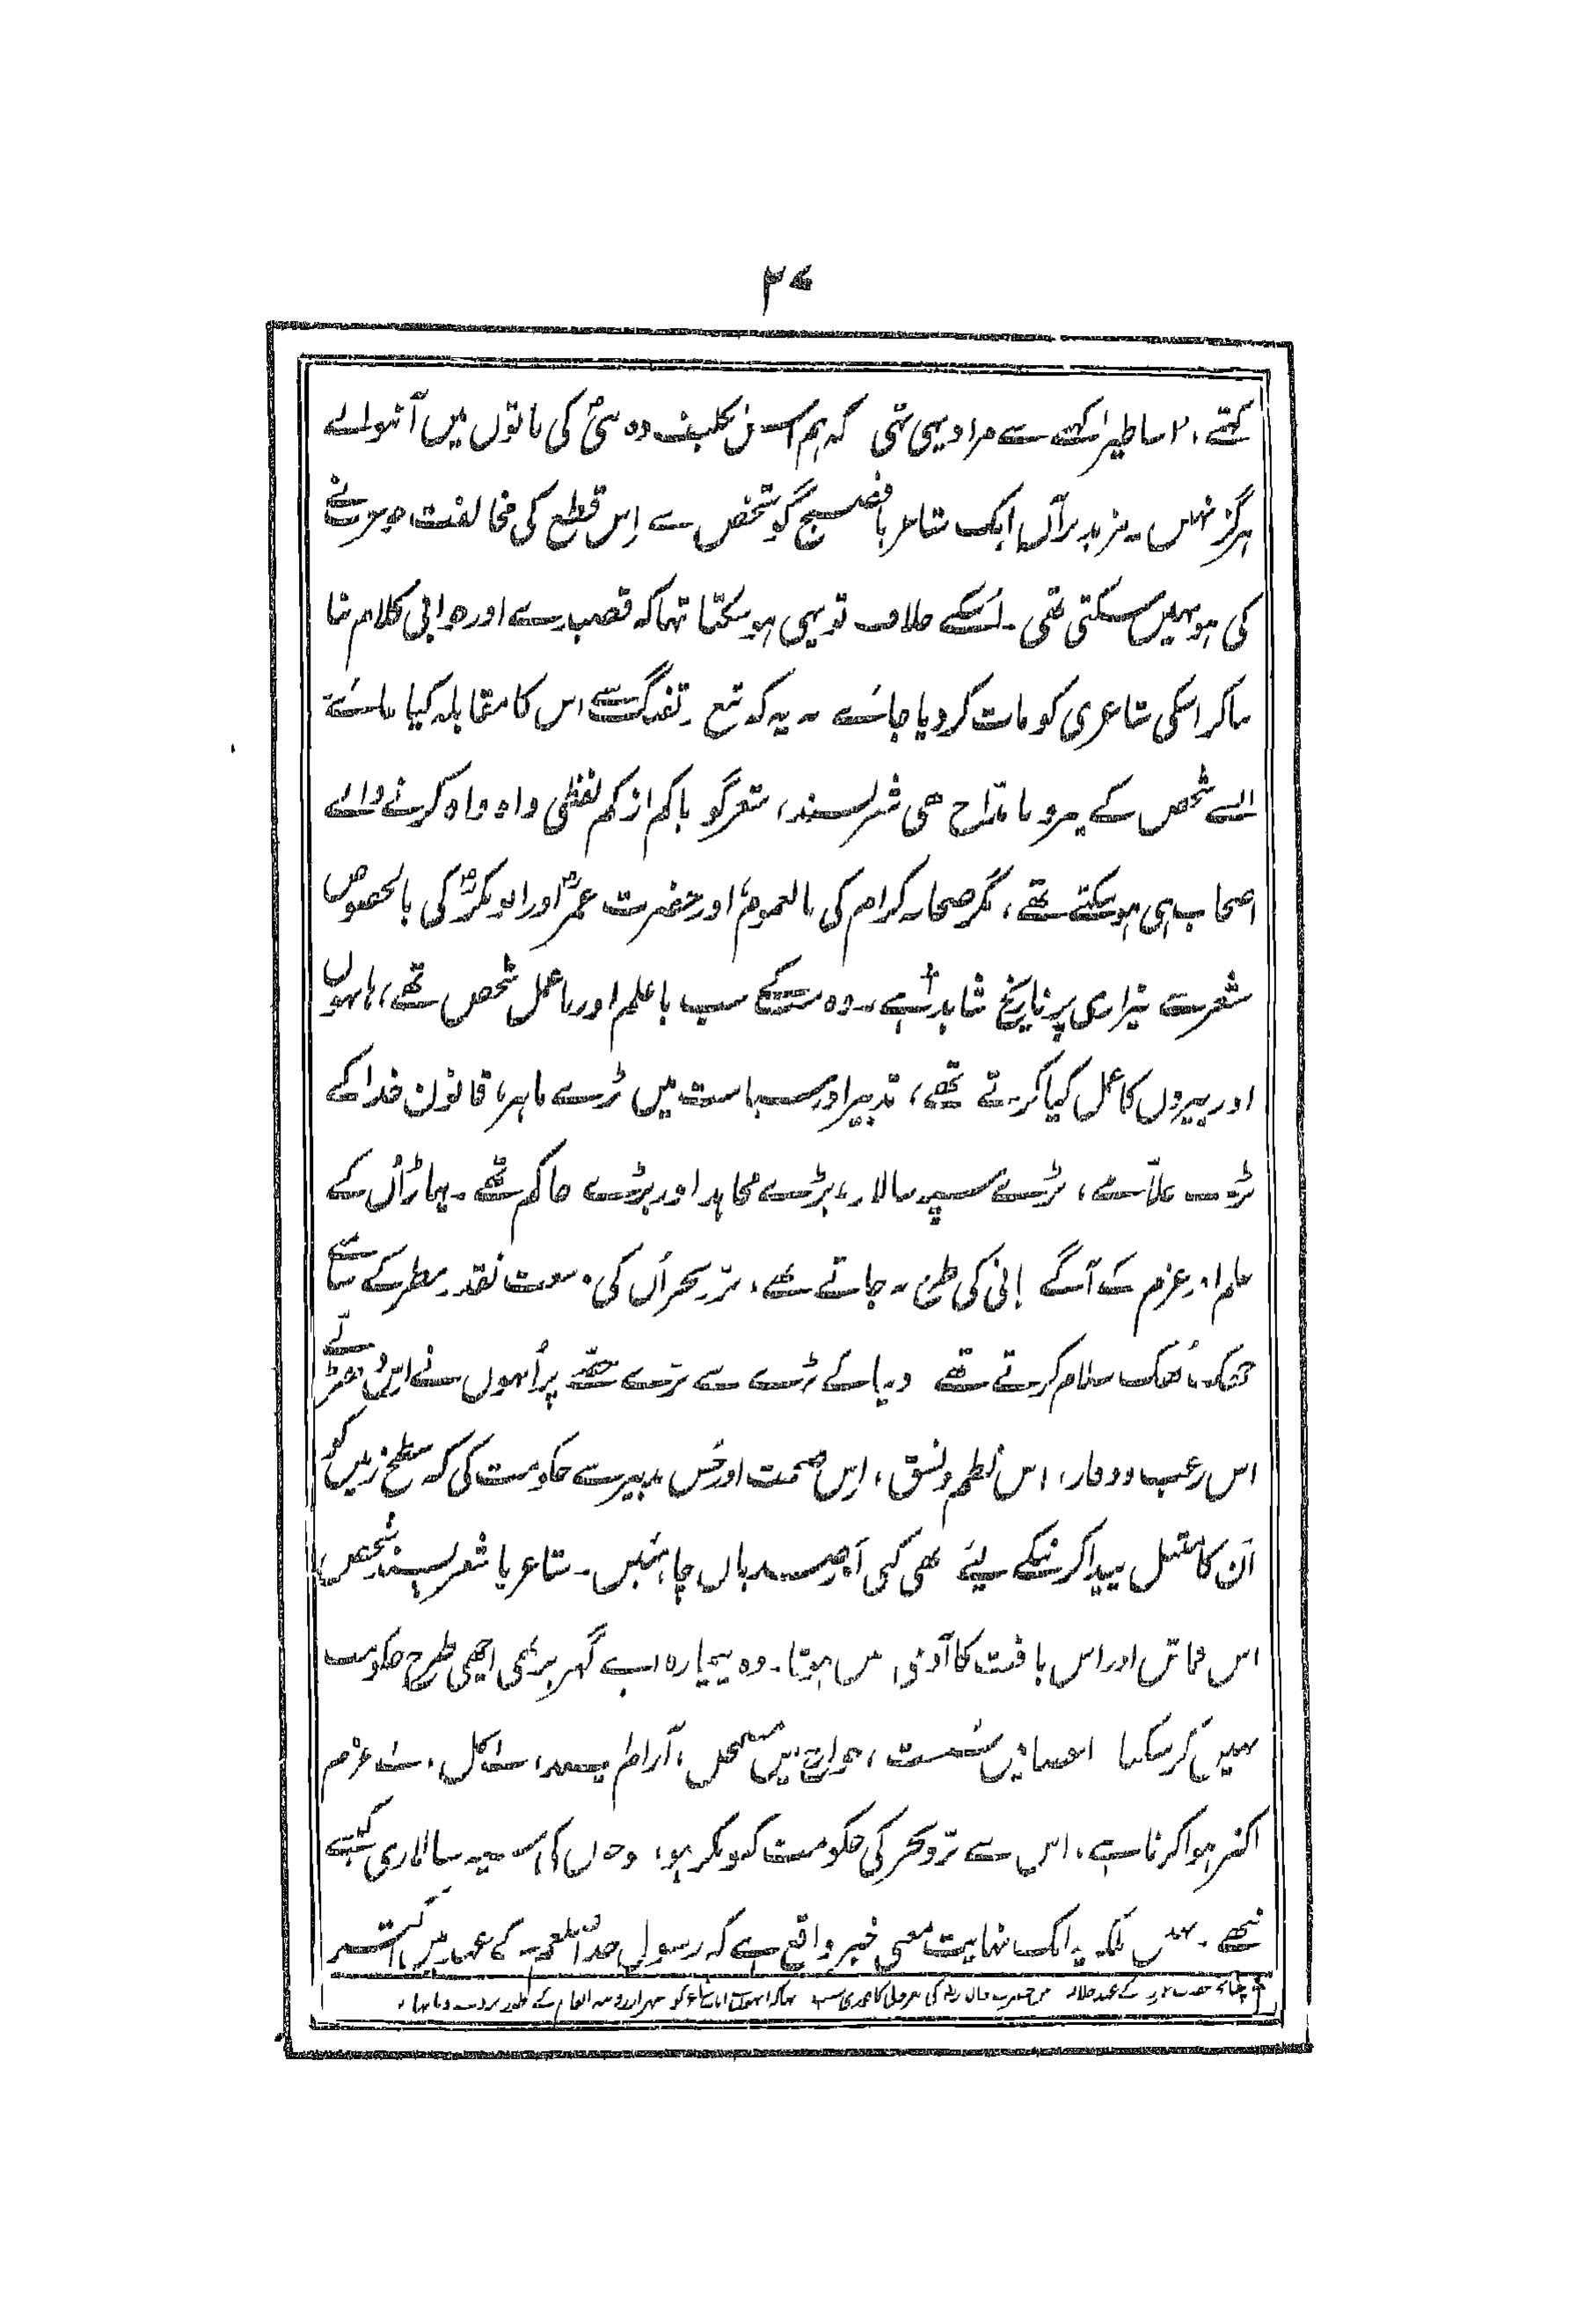 ۲۷
کہتے، اساطیر کہنے سے مراد یہی تہی کہ ہم اس تکلیف دہ سچی کی باتوں میں آنیوالے
ہرگز نہیں۔ مزید برآں ایک شاعر یا فصیح گو شخص سے اِس قطع کی مخالفت
کی ہو نہیں سکتی تھی۔ اسکے خلاف تو یہی ہو سکتا تہا کہ قصیدے اور ہوائی کلام بنا
بنا کر اسکی شاعری کو مات کر دیا جائے نہ یہ کہ تیغ و تفنگ سے اس کا مقابلہ کیا جائے
ایسے شخص کے پیرو یا مدّاح بھی شعر پسند، شعر گو یا کم از کم لفظی واہ واہ کرنے والے
اصحاب ہی ہو سکتے تھے، مگر صحابہ کرام کی بالعموم اور حضرت عمرؓ اور ابوبکرؓ کی بالخصوص
شعر سے بیزاری پر تاریخ شاہد ہے†۔ وہ سب کے سب با علم اور با عمل شخص تھے، ہاتہوں
اور پیروں کا عمل کیا کرتے تھے، تدبیر اور سیاست میں بڑے ماہر، قانون خدا کے
بڑے علاّمے، بڑے سپہ سالار، بڑے مجاہد اور بڑے حاکم تھے۔ پہاڑ اُن کے
علم اور عزم کے آگے پانی کی طرح بہ جاتے تھے، بّر و بحر اُن کی وسعت نظر کے سامنے
جھک جُھک سلام کرتے تھے دنیا کے بڑے سے بڑے حصّے پر اُنہوں نے اِس دھڑلّے
اس رعب و وقار، اس نظم و نسق، اِس صحت اور حُسن تدبیر سے حکومت کی کہ سطح زمیں کو
اُن کا مثیل پیدا کرنیکے لیئے بھی کئی صدیاں چاہئیں۔ شاعر یا شعر پسند شخص،
اس قماش اور اس بافت کا آدمی نہیں ہوتا۔ وہ بیچارہ اپنے گھر پر بھی اچھی طرح حکومت
نہیں کر سکتا اعضا میں سُست، جوارح میں مضمحل، آرام پسند، بے کل، بے عزم
اکثر ہوا کرتا ہے، اس سے بّر و بحر کی حکومت کیونکر ہو، فوجوں کی سپہ سالاری کیسے
نبھے۔ نہیں بلکہ یہ ایک نہایت معنی خیز واقع ہے کہ رسولِ خدا صلعم کے عہد میں اکثر
† چنانچہ حضرت عمر کے عہد خلافت میں حضرت خالد کی معزولی کا